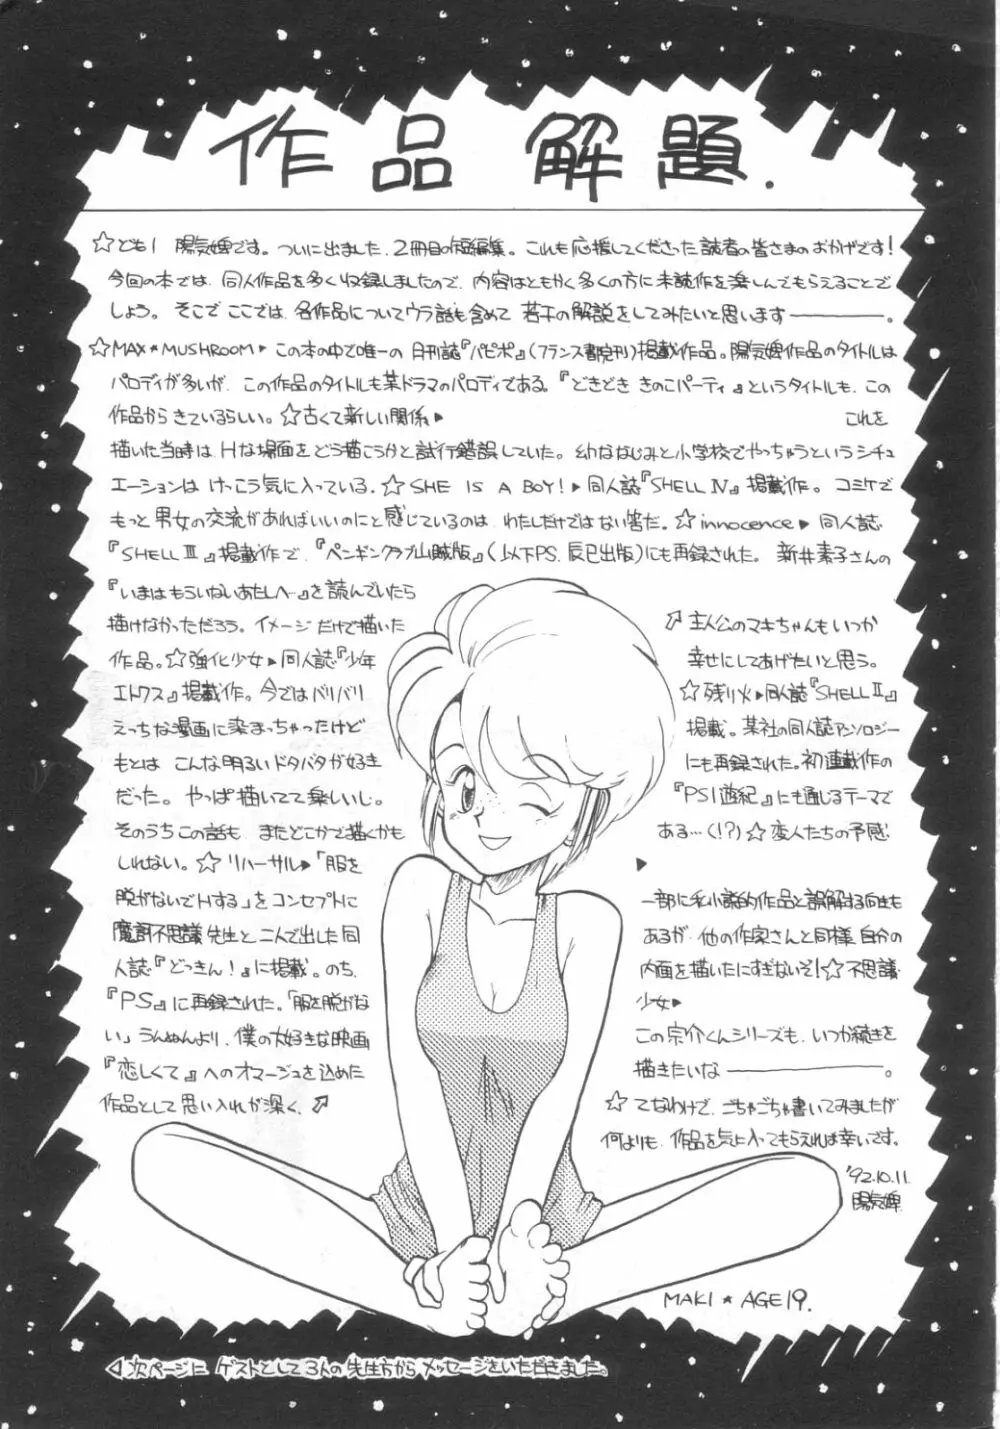 作品解題.
☆ども! 陽気婢です。ついに出ました、2冊目の短編集。これも応援してくださった読者の皆さまのおかげです!
今回の本では、同人作品を多く収録しましたので、内容はともかく多くの方に未読作を楽しんでもらえることで
しょう。そこで ここでは、各作品についてウラ話も含めて 若干の解説をしてみたいと思います――。
☆MAX★MUSHROOM▶この本の中で唯一の 月刊誌『パピポ』(フランス書院刊)掲載作品。陽気婢作品のタイトルは
パロディが多いが、この作品のタイトルも某ドラマのパロディである。『どきどき きのこパーティ』というタイトルも、この
作品からきているらしい。☆古くて新しい関係▶ これを
描いた当時は、Hな場面をどう描こうかと試行錯誤していた。幼ななじみと小学校でやっちゃうというシチュ
エーションは けっこう気に入っている。☆SHE IS A BOY!▶同人誌『SHELL Ⅳ』掲載作。コミケで
もっと男女の交流があればいいのにと感じているのは、わたしだけではない筈だ。☆innocence▶同人誌
『SHELL Ⅲ』掲載作で、『ペンギンクラブ山賊版』(以下PS、辰巳出版)にも再録された。新井素子さんの
『いまはもういないあたしへ…』を読んでいたら
描けなかっただろう。イメージだけで描いた
作品。☆強化少女▶同人誌『少年
エトワス』掲載作。今ではバリバリ
えっちな漫画に染まっちゃったけど
もとは こんな明るいドタバタが好き
だった。やっぱ描いてて楽しいし。
そのうちこの話も、またどこかで描くかも
しれない。☆リハーサル▶「服を
脱がないでHする」をコンセプトに
魔訶不思議先生と二人で出した同
人誌『どっきん!』に掲載。のち、
『PS』に再録された。「服を脱がな
い」うんぬんより、僕の大好きな映画
『恋しくて』へのオマージュを込めた
作品として思い入れが深く、↗
↗主人公のマキちゃんもいつか
幸せにしてあげたいと思う。
☆残り火▶同人誌『SHELL Ⅱ』
掲載。某社の同人誌アンソロジー
にも再録された。初連載作の
『PSI遊紀』にも通じるテーマで
ある…(!?)☆変人たちの予感
▶
一部に私小説的作品と誤解する向きも
あるが、他の作家さんと同様、自分の
内面を描いたにすぎないぞ!☆不思議
少女▶
この宗介くんシリーズも、いつか続きを
描きたいな――。
☆てなわけで、ごちゃごちゃ書いてみましたが
何よりも、作品を気に入ってもらえれば幸いです。
'92.10.11.
陽気婢
MAKI★AGE19.
◁次ページに ゲストとして3人の先生方からメッセージをいただきました。